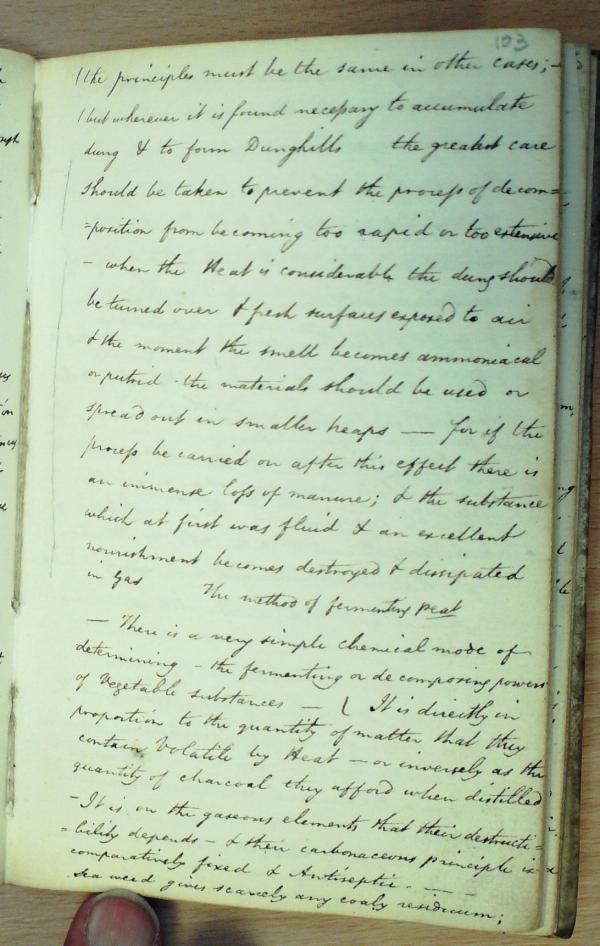 103
(the principles must be the same in other cases; -
(but wherever it is found necessary to accumulate
dung & to form Dunghills the greatest care
should be taken to prevent the process of decom=
=position from becoming too rapid or too extensive
- when the Heat is considerable the dung should
be turned over & fresh surfaces exposed to air
& the moment the smell becomes ammoniacal
or putrid - the materials should be used or
spread out in smaller heaps — for if the
process be carried on after this effect there is
an immense loss of manure; & the substance
which at first was fluid & an excellent
nourishment becomes destroyed & dissipated
in Gas The method of fermenting Peat
— There is a very simple chemical mode of
determining - the fermenting or decomposing powers
of Vegetable substances — ( It is directly in
proportion to the quantity of matter that they
contain Volatile by Heat — or inversely as the
quantity of charcoal they afford when distilled
- It is on the gaseous elements that their destructi=
=bility depends - & their carbonaceous principle is
comparatively fixed & Antiseptic. — —
Sea weed gives scarcely any coaly residuum;